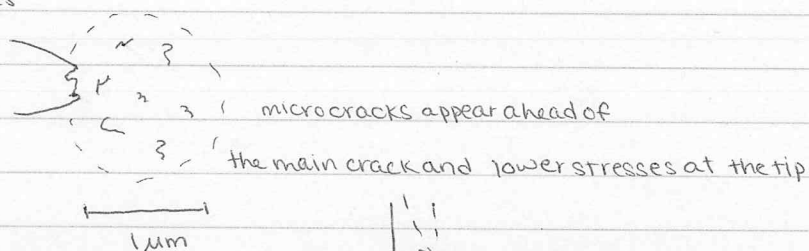 microcracks appear ahead of
the main crack and lower stresses at the tip
1um